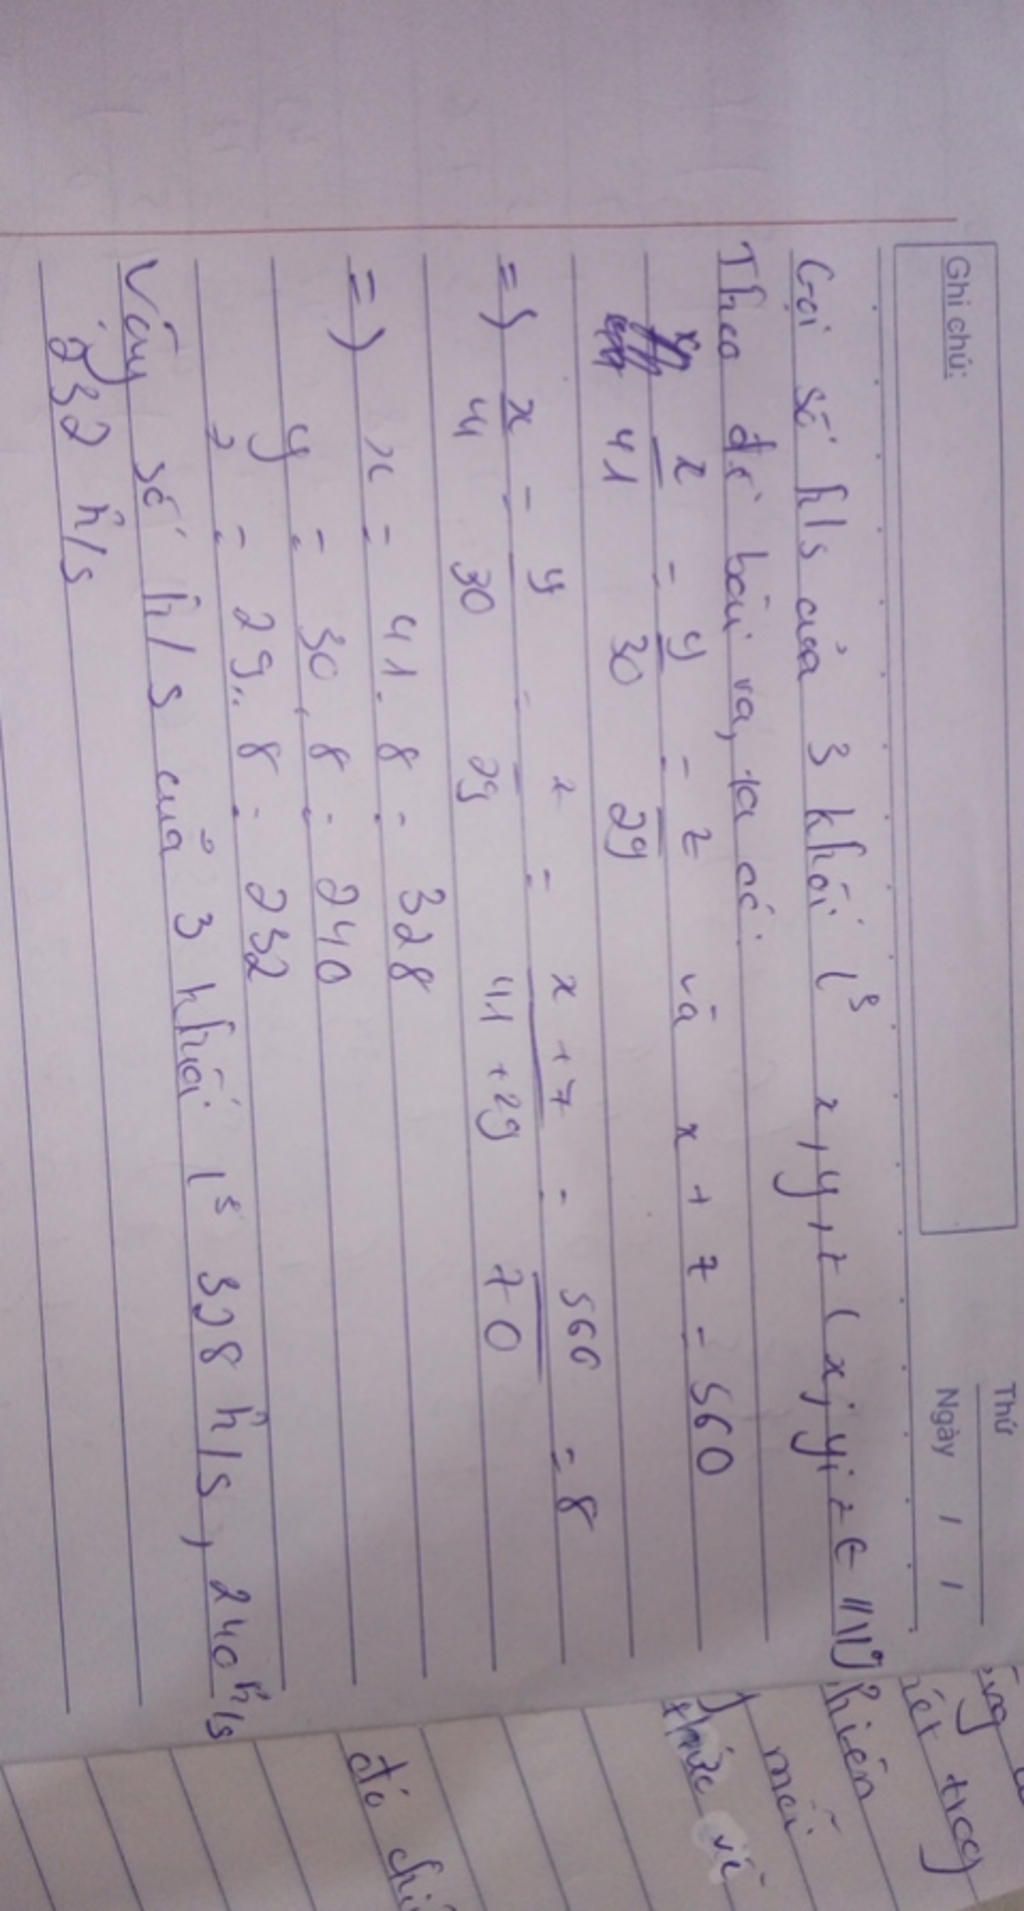 Ghi chú:
Thứ
Ngày / /
Gọi số h/s của 3 khối lˢ x, y, z (x; y; z ∈ ℕ*)
Theo đề bài ra, ta có:
x/41 = y/30 = z/29 và x + z = 560
=) x/41 = y/30 = z/29 = x+z/41+29 = 560/70 = 8
=) x = 41.8 = 328
y = 30.8 = 240
z = 29.8 = 232
Vậy số h/s của 3 khối lˢ 328 h/s, 240 h/s
, 232 h/s
thức về
đó